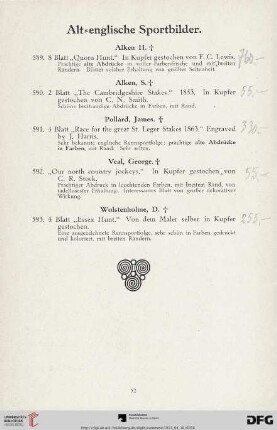 Alt=englische Sportbilder.
Alken H. †
589. 8 Blatt „Quorn Hunt.“ In Kupfer gestochen von F. C. Lewis. 760.-
Prächtige alte Abdrücke in voller Farbenfrische und mit breiten
Rändern. Blätter solcher Erhaltung von größter Seltenheit.
Alken, S. †
590. 2 Blatt „The Cambridgeshire Stakes.“ 1853. In Kupfer 55.-
gestochen von C. N. Smith.
Schöne breitrandige Abdrücke in Farben, mit Rand.
Pollard, James. †
591. 4 Blatt „Race for the great St. Leger Stakes 1863.“ Engraved
by J. Harris.
Sehr bekannte englische Rennsportfolge; prächtige alte Abdrücke
in Farben, mit Rand. Sehr selten.
Veal, George. †
592. „Our north country jockeys.“ In Kupfer gestochen von 55.-
C. R. Stock.
Prächtiger Abdruck in leuchtenden Farben, mit breitem Rand, von
tadellosester Erhaltung. Interessantes Blatt von großer dekorativer
Wirkung.
Wolstenholme, D. †
593. 4 Blatt „Essex Hunt.“ Von dem Maler selber in Kupfer 255.-
gestochen.
Eine ausgezeichnete Rennsportfolge, sehr schön in Farben gedruckt
und koloriert, mit breiten Rändern.
52
UNIVERSITÄTS-
BIBLIOTHEK
HEIDELBERG
DFG